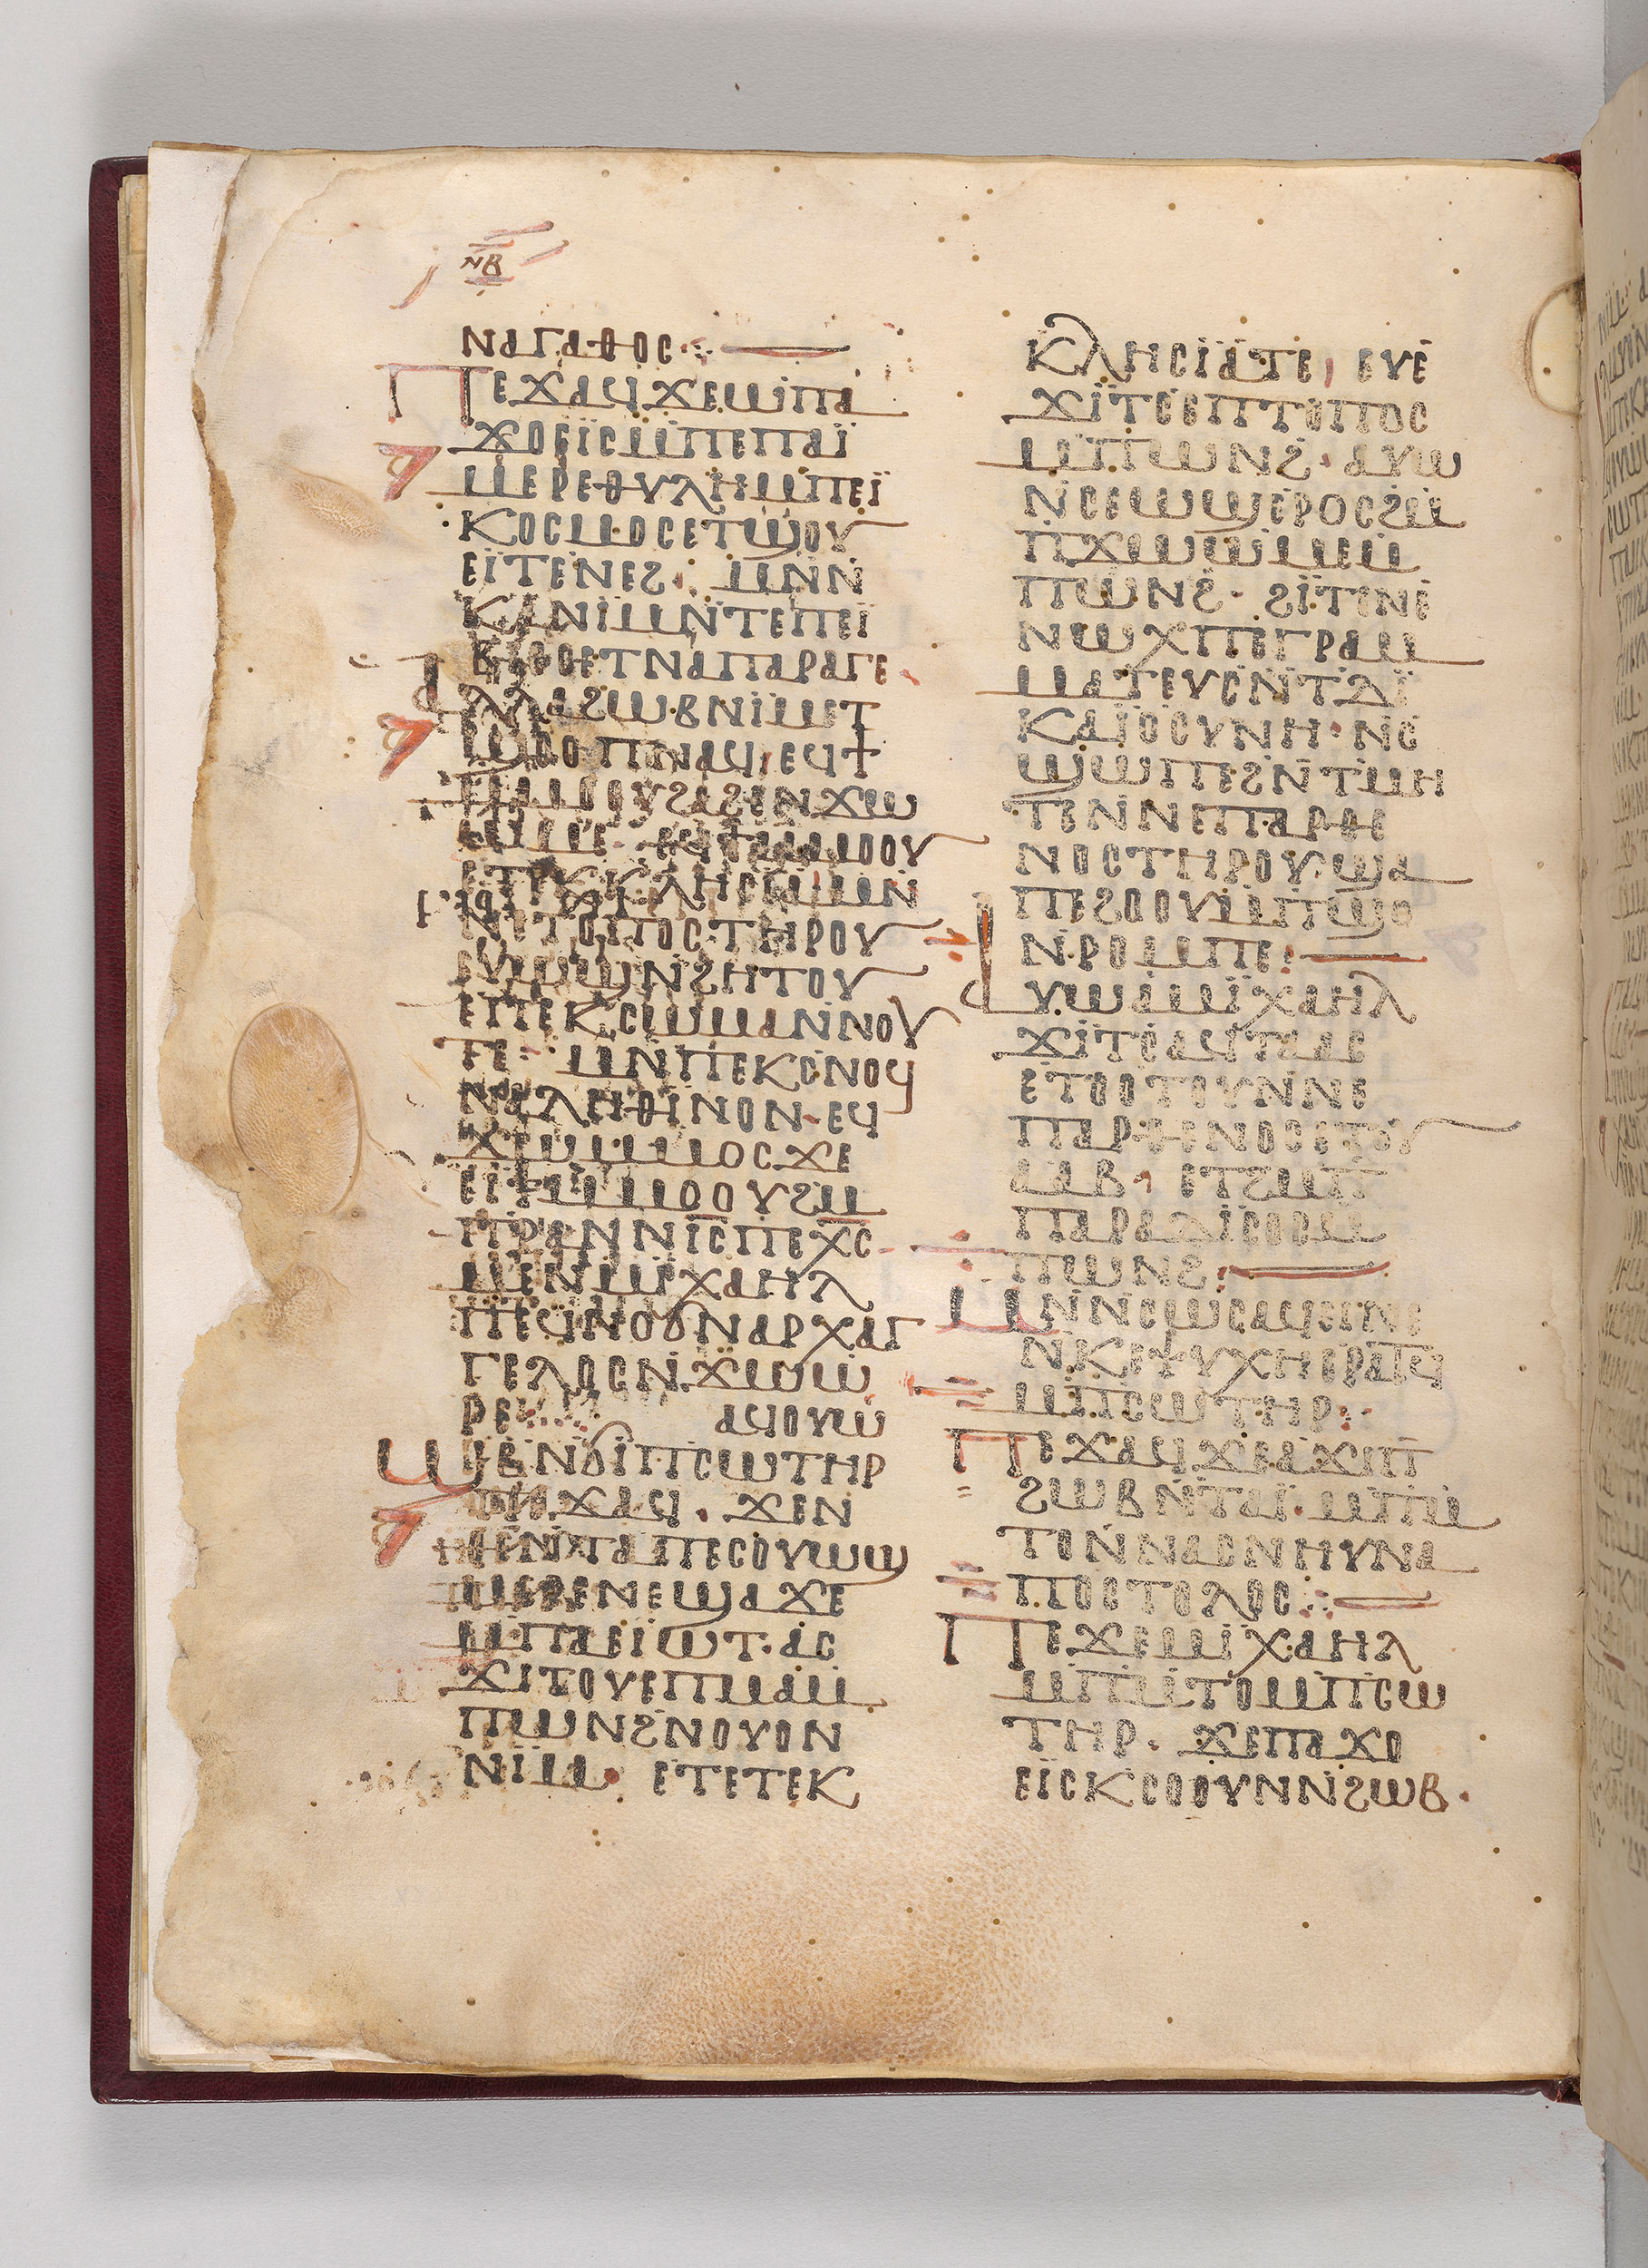 ⲛⲃ
ⲛⲁⲅⲁⲑⲟⲥ
ⲡⲉϫⲁϥϫⲉⲱⲡⲁ
ϫⲟⲉⲓⲥⲙⲡⲉⲡⲁⲓ̈
ⲙⲉⲣⲉⲑⲩⲗⲏⲙⲡⲉⲓ̈
ⲕⲟⲥⲙⲟⲥⲉⲧϣⲟⲩ
ⲉⲓⲧⲉⲛⲉϩ ⲙⲛⲛ
ⲕⲁⲛⲓⲙⲛⲧⲉⲡⲉⲓ̈
ⲃⲓⲟⲥⲉⲧⲛⲁⲡⲁⲣⲁⲅⲉ
ⲁⲗⲗⲁϩⲱⲃⲛⲓⲙⲉⲧ
ⲉⲕⲕⲗⲏⲥⲓⲁⲙⲛ
ⲛⲉⲧⲟⲡⲟⲥⲧⲏⲣⲟⲩ
ⲉⲩⲱϣⲛϩⲏⲧⲟⲩ
ⲉⲡⲉⲕⲥⲱⲙⲁⲛⲛⲟⲩ
ⲧⲉ ⲙⲛⲡⲉⲕⲥⲛⲟϥ
ⲛⲁⲗⲏⲑⲓⲛⲟⲛ ⲉϥ
ϫⲱⲙⲙⲟⲥϫⲉ
ⲉⲓϯⲙⲙⲟⲟⲩϩⲙ
ⲡⲣⲁⲛⲛⲓⲥⲡⲉⲭⲥ
ⲙⲛⲙⲓⲭⲁⲏⲗ
ⲡⲉϥⲛⲟϭⲛⲁⲣⲭⲁⲅ
ⲅⲉⲗⲟⲥⲛϫⲱⲱ
ⲣⲉ ⲁϥⲟⲩⲱ
ϣⲃⲛϭⲓⲡⲥⲱⲧⲏⲣ
ⲡⲉϫⲁϥ ϫⲉⲛ
ⲑⲉⲛⲧⲁⲡⲉⲥⲟⲩⲱϣ
ⲙⲉⲣⲉⲛⲉϣⲁϫⲉ
ⲙⲡⲁⲉⲓⲱⲧ ⲁⲥ
ϫⲓⲧⲟⲩⲉⲡⲙⲁⲙ
ⲡⲱⲛϩⲛⲟⲩⲟⲛ
ⲛⲓⲙ ⲉⲧⲉⲧⲉⲕ
ⲕⲗⲏⲥⲓⲁⲧⲉ ⲉⲩⲉ
ϫⲓⲧⲥⲉⲡⲧⲟⲡⲟⲥ
ⲙⲡⲱⲛϩ ⲁⲩⲱ
ⲛⲥⲉⲱϣⲉⲣⲟⲥϩⲙ
ⲡϫⲱⲱⲙⲉⲙ
ⲡⲱⲛϩ ϩⲓⲧⲛⲉ
ⲛⲱⲭⲡⲉⲅⲣⲁⲙ
ⲙⲁⲧⲉⲩⲥⲛⲧⲇⲓ
ⲕⲁⲓ̈ⲟⲥⲩⲛⲏ ⲛⲥ
ϣⲱⲡⲉϩⲛⲧⲙⲏ
ⲧⲉⲛⲛⲉⲡⲁⲣⲑⲉ
ⲛⲟⲥⲧⲏⲣⲟⲩϣⲁ
ⲡⲉϩⲟⲟⲩⲙⲡϣⲟ
ⲛⲣⲟⲙⲡⲉ
ⲁⲩⲱⲁⲙⲓⲭⲁⲏⲗ
ϫⲓⲧⲥⲁϥⲧⲁⲁⲥ
ⲉⲧⲟⲟⲧⲟⲩⲛⲛⲉ
ⲡⲁⲣⲑⲉⲛⲟⲥⲉⲧⲟⲩ
ⲁⲁⲃ ⲉⲧϩⲙⲡ
ⲡⲁⲣⲁⲇⲓⲥⲟⲥⲙ
ⲡⲱⲛϩ
ⲙⲛⲛⲥⲱⲥⲁϥⲉⲓⲛⲉ
ⲛⲕⲉⲯⲩⲭⲏⲉⲣⲁⲧϥ
ⲙⲡⲥⲱⲧⲏⲣ
ⲡⲉϫⲁϥϫⲉⲁϫⲓⲡ
ϩⲱⲃⲛⲧⲁⲓ̈ ⲙⲡⲙ
ⲧⲟⲛⲛⲁⲥⲛⲏⲩⲛⲁ
ⲡⲟⲥⲧⲟⲗⲟⲥ
ⲡⲉϫⲉⲙⲓⲭⲁⲏⲗ
ⲙⲡⲙⲧⲟⲙⲡⲥⲱ
ⲧⲏⲣ ϫⲉⲡⲁϫⲟ
ⲉⲓⲥⲕⲥⲟⲟⲩⲛⲛϩⲱⲃ